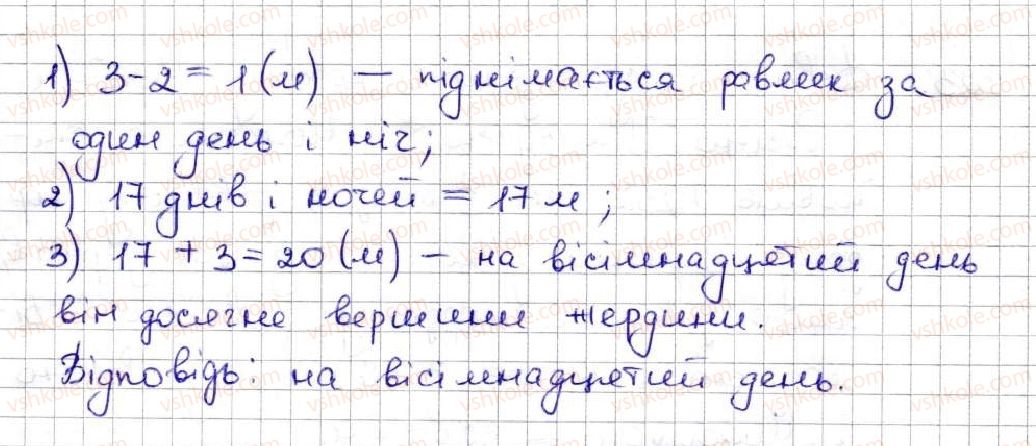 1) 3-2=1(м) — піднімається равлик за
один день і ніч;
2) 17 днів і ночей = 17 м;
3) 17 + 3 = 20 (м) – на вісімнадцятий день
він досягне вершини жердини.
Відповідь: на вісімнадцятий день.